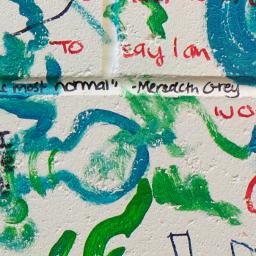 TO say I am
most normal" -Meredith Grey
WO